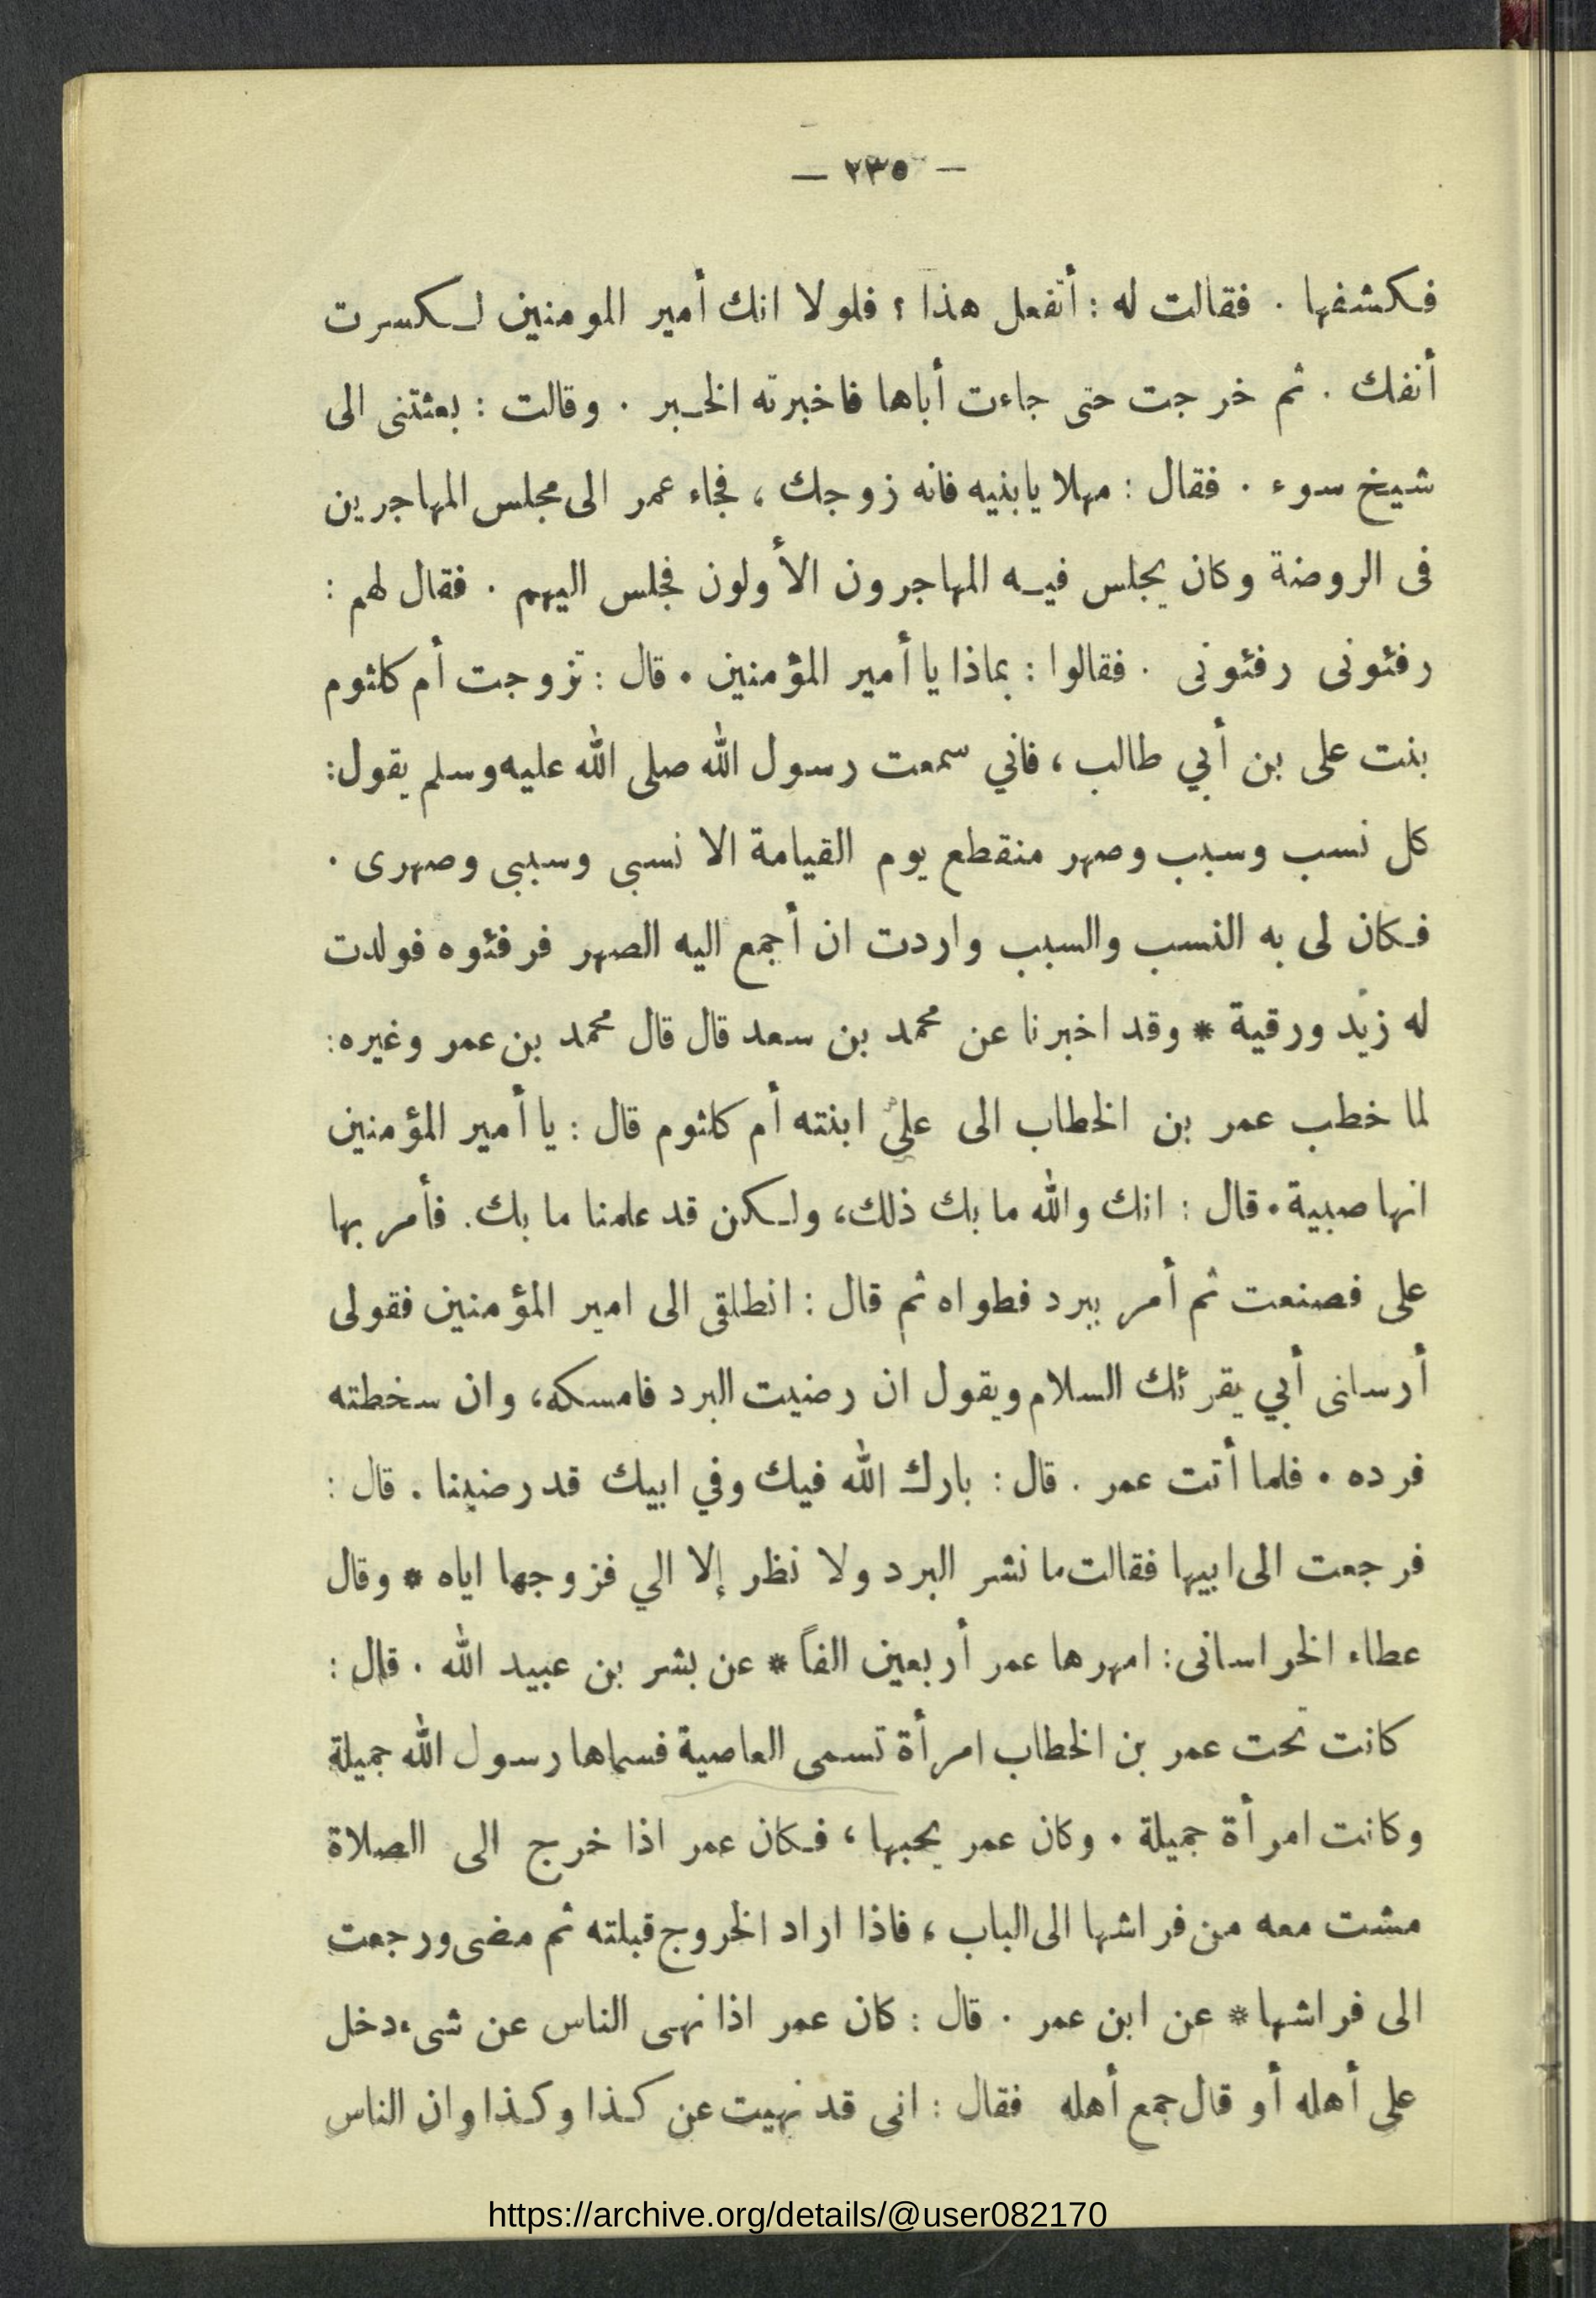 — ٢٣٥ —
فكشفها . فقالت له : أتفعل هذا ؟ فلولا انك أمير المومنين لكسرت
أنفك . ثم خرجت حتى جاءت أباها فاخبرته الخبر . وقالت : بعثتنى الى
شيخ سوء . فقال : مهلا يابنيه فانه زوجك ، فجاء عمر الى مجلس المهاجرين
فى الروضة وكان يجلس فيه المهاجرون الأولون فجلس اليهم . فقال لهم :
رفئونى رفئونى . فقالوا : بماذا يا أمير المؤمنين . قال : تزوجت أم كلثوم
بنت على بن أبي طالب ، فاني سمعت رسول الله صلى الله عليه وسلم يقول :
كل نسب وسبب وصهر منقطع يوم القيامة الا نسبى وسببى وصهرى .
فكان لى به النسب والسبب واردت ان أجمع اليه الصهر فرفئوه فولدت
له زيد ورقية * وقد اخبرنا عن محمد بن سعد قال قال محمد بن عمر وغيره :
لما خطب عمر بن الخطاب الى على ابنته أم كلثوم قال : يا أمير المؤمنين
انها صبية . قال : انك والله ما بك ذلك ، ولكن قد علمنا ما بك . فأمر بها
على فصنعت ثم أمر ببرد فطواه ثم قال : انطلقى الى امير المؤمنين فقولى
أرسلنى أبي يقرئك السلام ويقول ان رضيت البرد فامسكه ، وان سخطته
فرده . فلما أتت عمر . قال : بارك الله فيك وفي ابيك قد رضينا . قال :
فرجعت الى ابيها فقالت ما نشر البرد ولا نظر إلا الي فزوجها اياه * وقال
عطاء الخراسانى : امهرها عمر أربعين الفاً * عن بشر بن عبيد الله . قال :
كانت تحت عمر بن الخطاب امرأة تسمى العاصية فسماها رسول الله جميلة
وكانت امرأة جميلة . وكان عمر يحبها ، فكان عمر اذا خرج الى الصلاة
مشت معه من فراشها الى الباب ، فاذا اراد الخروج قبلته ثم مضى ورجعت
الى فراشها * عن ابن عمر . قال : كان عمر اذا نهى الناس عن شىء دخل
على أهله أو قال جمع أهله فقال : انى قد نهيت عن كذا وكذا وان الناس
https://archive.org/details/@user082170